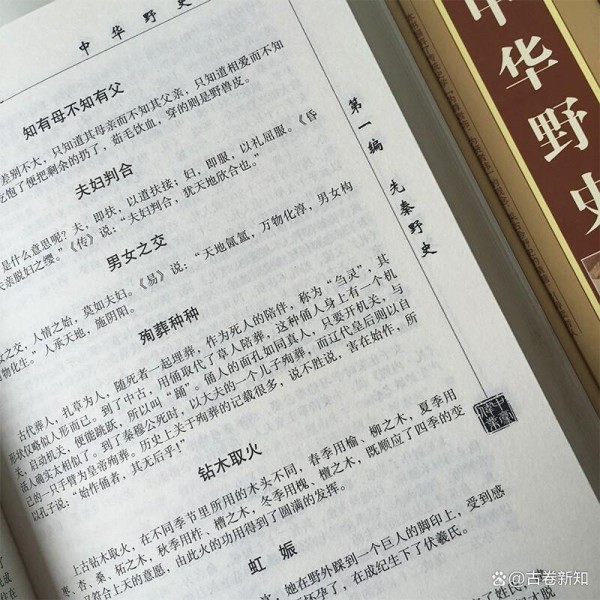 中华野史
知有母不知有父
差别不大，只知道其母亲而不知其父亲，只知道相爱而不知
吃饱了便把剩余的扔了，茹毛饮血，穿的则是野兽皮。
夫妇判合
是什么意思呢？夫，即扶，以道扶接；妇，即服，以礼屈服。《昏
亲脱妇之缨。”《传》说：“夫妇判合，犹天地欣合也。”
男女之交
之交，人情之始，莫如夫妇。《易》说：“天地氤氲，万物化淳，男女构
万物化生。”人承天地，施阴阳。
殉葬种种
古代葬人，扎草为人，随死者一起埋葬，作为死人的陪伴，称为“刍灵”，其
形状仅略似人形而已。到了中古，用俑取代了草人陪葬，这种俑人身上有一个机
关，启动机关，便能跳跃，所以叫“踊”。俑人的面孔如同真人，只要开机关，与
活人确实太相似了。到了秦穆公死时，以大夫的一个儿子殉葬，而辽代皇后则以自
己的一只手臂为皇帝殉葬。历史上关于殉葬的记载很多，说不胜说，害在始作，所
以孔子说：“始作俑者，其无后乎！”
钻木取火
上古钻木取火，在不同季节里所用的木头不同，春季用榆、柳之木，夏季用
枣、杏、桑、柘之木，秋季用柞、楢之木，冬季用槐、檀之木，既顺应了四季的变
又符合上天的意愿，由此火的功用得到了圆满的发挥。
虹娠
她在野外踩到一个巨人的脚印上，受到感
怀孕了，在成纪生下了伏羲氏。
第一编
先秦野史
中华野史
@古卷新知